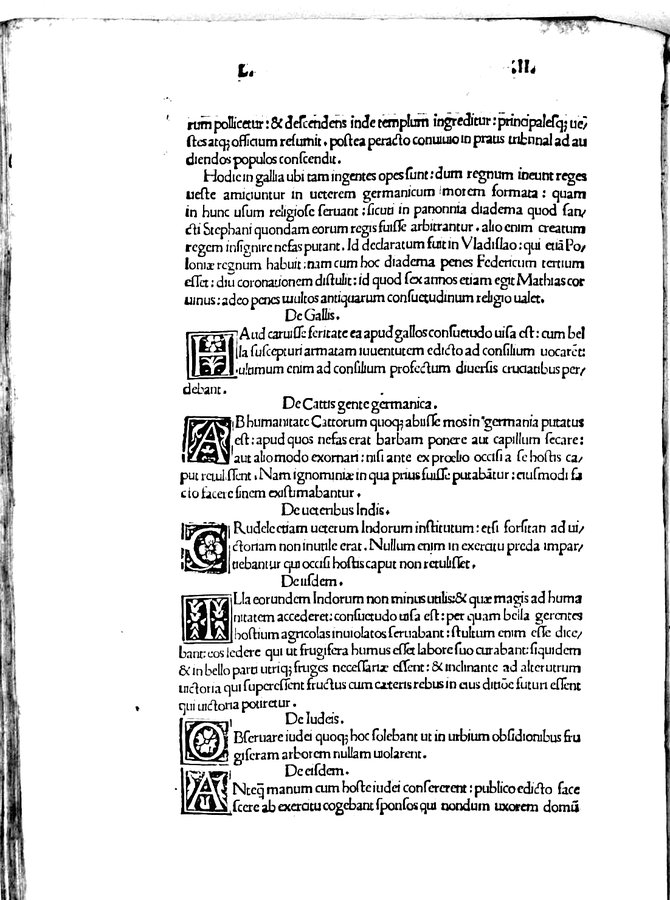 L. .II.
rum pollicetur : & descendens inde templum ingreditur : principalesq; ue/
stes atq; officium resumit . postea peracto conuiuio in pratis tribunal ad au
diendos populos conscendit .
Hodie in gallia ubi tam ingentes opes sunt : dum regnum ineunt reges
ueste amiciuntur in ueterem germanicum morem formata : quam
in hunc usum religiose seruant : sicuti in panonnia diadema quod san/
cti Stephani quondam eorum regis fuisse arbitrantur . alio enim creatum
regem insignire nefas putant . Id declaratum fuit in Vladislao : qui etiā Po/
loniæ regnum habuit : nam cum hoc diadema penes Federicum tertium
esset : diu coronationem distulit : id quod sex annos etiam egit Mathias cor
uinus : adeo penes multos antiquarum consuetudinum religio ualet .
De Gallis .
HAud caruisse feritate ea apud gallos consuetudo uisa est : cum bel
lla suscepturi armatam iuuentutem edicto ad consilium uocarēt:
ultimum enim ad consilium profectum diuersis cruciatibus per/
debant .
De Cattis gente germanica .
AB humanitate Cattorum quoq; abiisse mos in germania putatus
est : apud quos nefas erat barbam ponere aut capillum secare :
aut alio modo exornari : nisi ante ex prœlio occisi a se hostis ca/
put retulissent . Nam ignominiæ in qua prius fuisse putabātur : eiusmodi fa
cto facere finem existimabantur .
De ueteribus Indis .
CRudele etiam ueterum Indorum institutum : etsi forsitan ad ui/
ctoriam non inutile erat . Nullum enim in exercitu preda impar/
tiebantur qui occisi hostis caput non retulisset .
De iisdem .
ILla eorundem Indorum non minus utilis: & quæ magis ad huma
nitatem accederet : consuetudo uisa est : per quam bella gerentes
hostium agricolas inuiolatos seruabant : stultum enim esse dice/
bant: eos ledere qui ut frugifera humus esset labore suo curabant: siquidem
& in bello parti utriq; fruges necessariæ essent : & inclinante ad alterutrum
uictoria qui superessent fructus cum cæteris rebus in eius ditiōe futuri essent
qui uictoria potiretur .
De Iudeis .
OBseruare iudei quoq; hoc solebant ut in urbium obsidionibus fru
giferam arborem nullam uiolarent .
De eisdem .
ANteq̄ manum cum hoste iudei consererent : publico edicto face
scere ab exercitu cogebant sponsos qui nondum uxorem domū